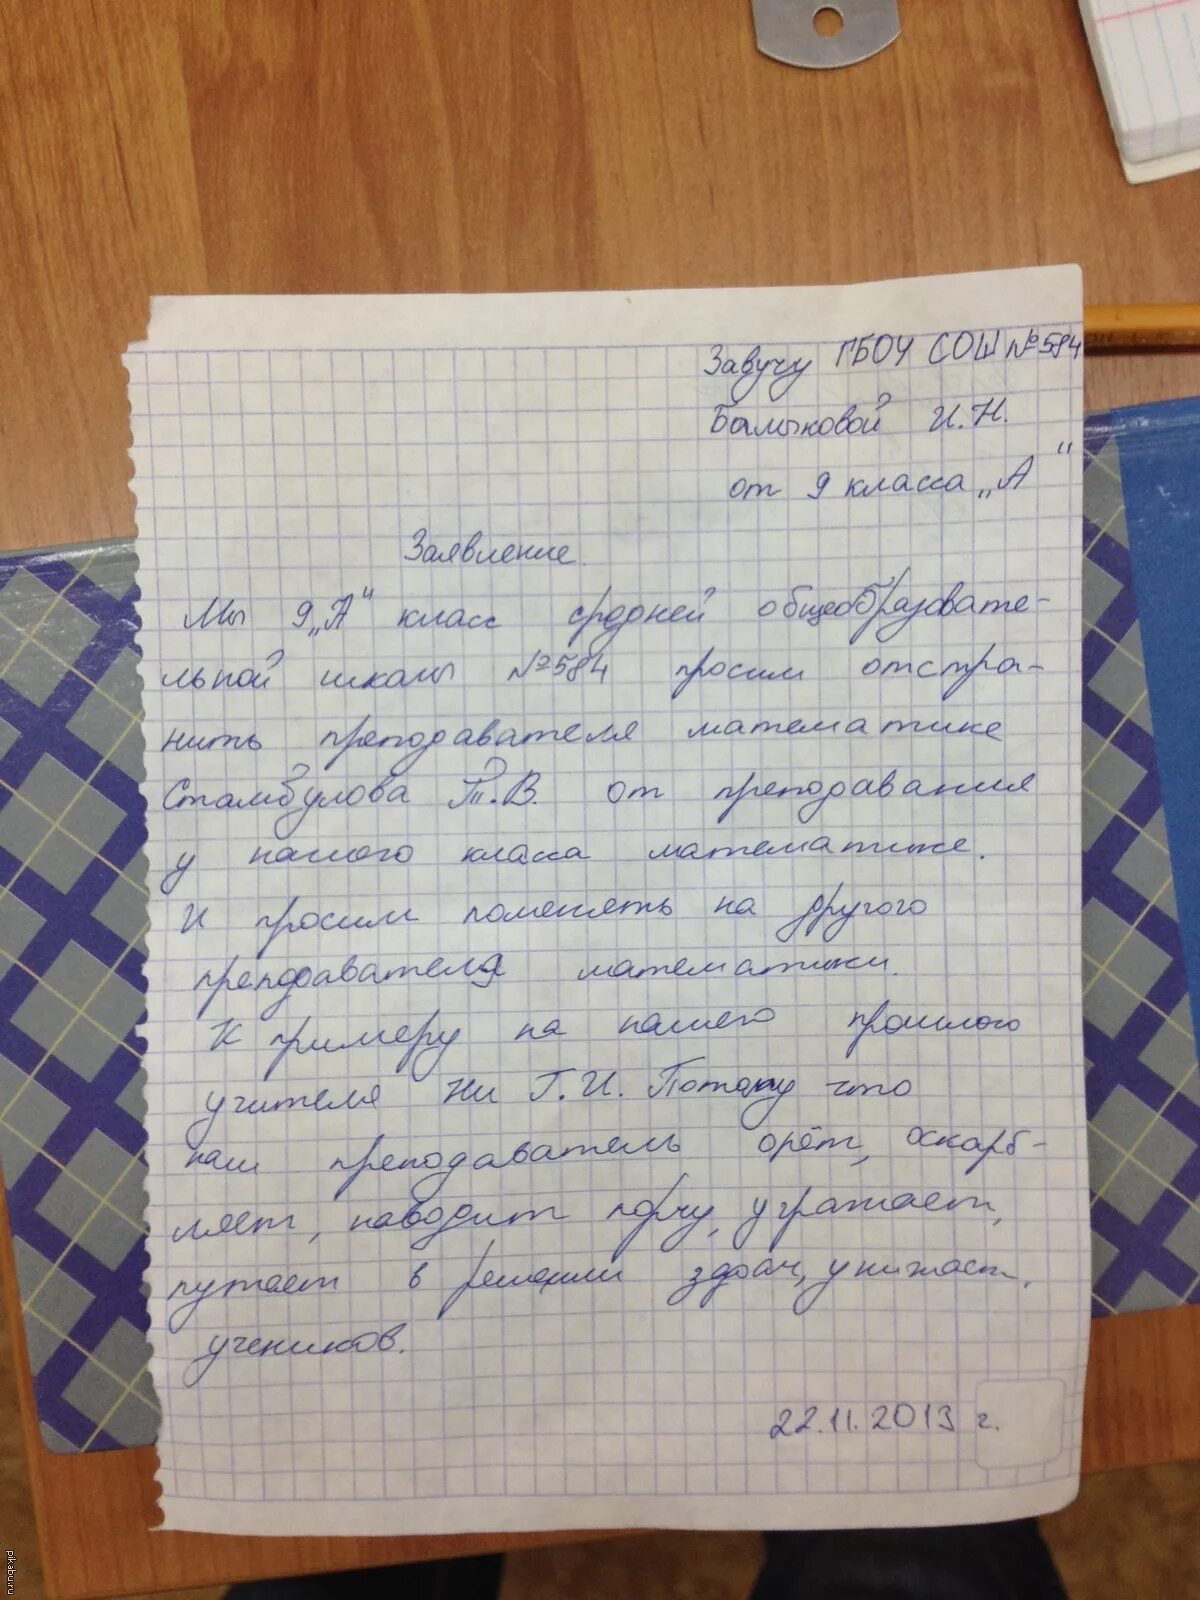 Завучу ГБОУ СОШ №584
Балыковой И.Н.
от 9 класса „А"
Заявление.
Мы 9„А" класс средней общеобразовате-
льной школы №584 просим отстра-
нить преподавателя математике
Стамбулова Т.В. от преподавания
у нашого класса математике.
И просим поменять на другого
преподавателя математики.
К примеру на нашего прошлого
учителя Ни Г.И. Потому что
наш преподаватель орёт, оскарб-
ляет, наводит порчу, угражает,
путает в решении здач, унижает,
учеников.
22.11.2013 г.
pikabu.ru